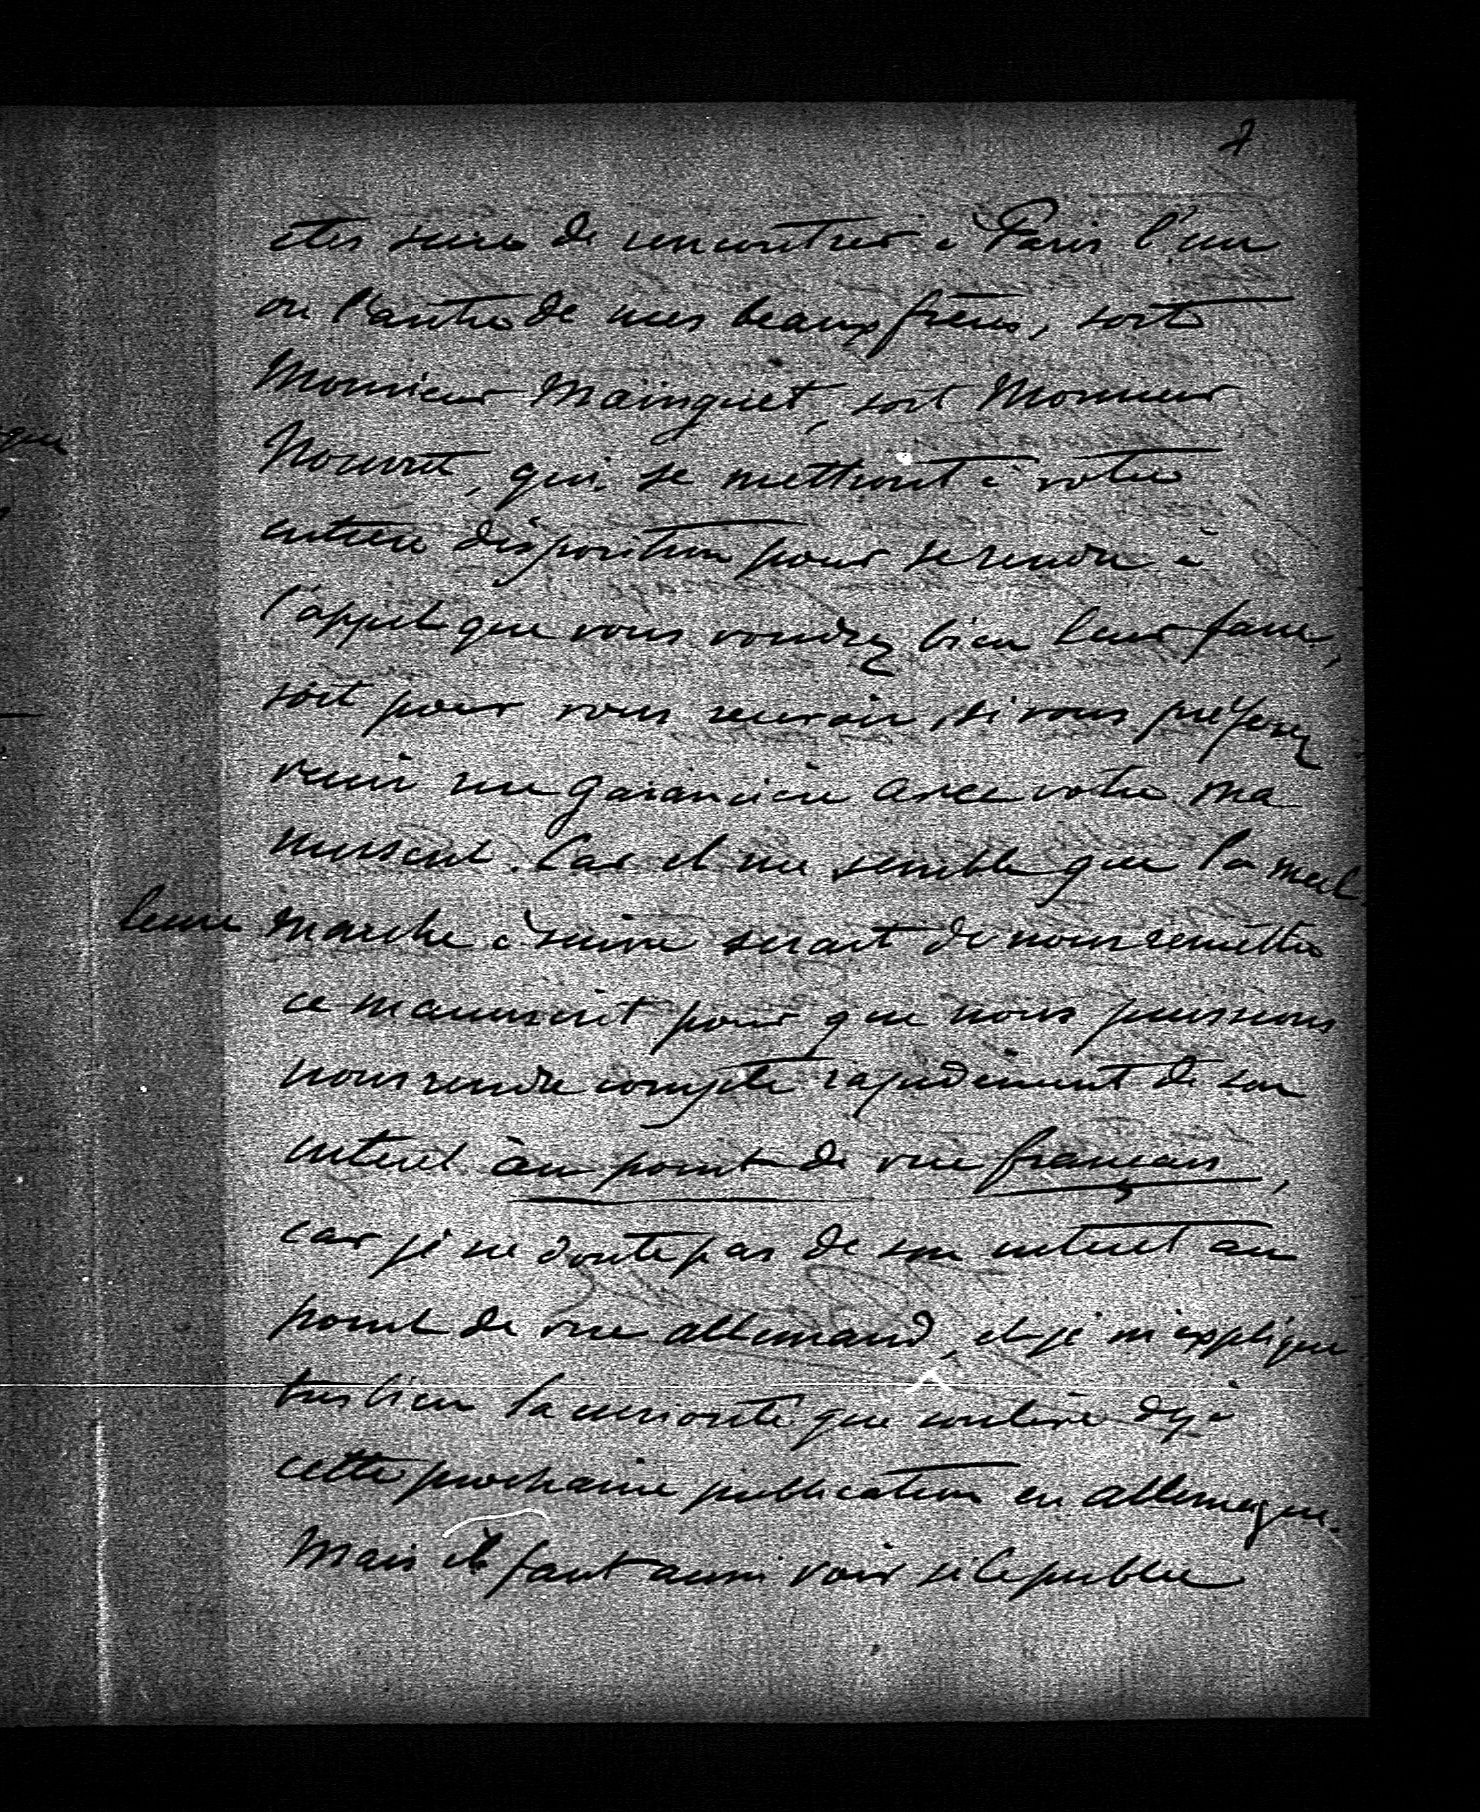 2
etes surs de rencontrer à Paris l'un
ou l'autre de mes beaux frères, soit
Monsieur Mainguet, soit Monsieur
Nourrit, qui se mettront à votre
entière disposition pour se rendre à
l'appel que vous voudrez bien leur faire,
soit pour vous recevoir, si vous préférez
venir rue Garancière avec votre ma
nuscrit. Car il me semble que la meil
leure marche à suivre serait de nous remettre
ce manuscrit pour que nous puissions
nous rendre compte rapidement de son
interet au point de vue français,
car je ne doute pas de son interet au
point de vue allemand, et je m'explique
tres bien la curiosité que soulève déjà
cette prochaine publication en allemagne.
Mais il faut aussi voir si le public